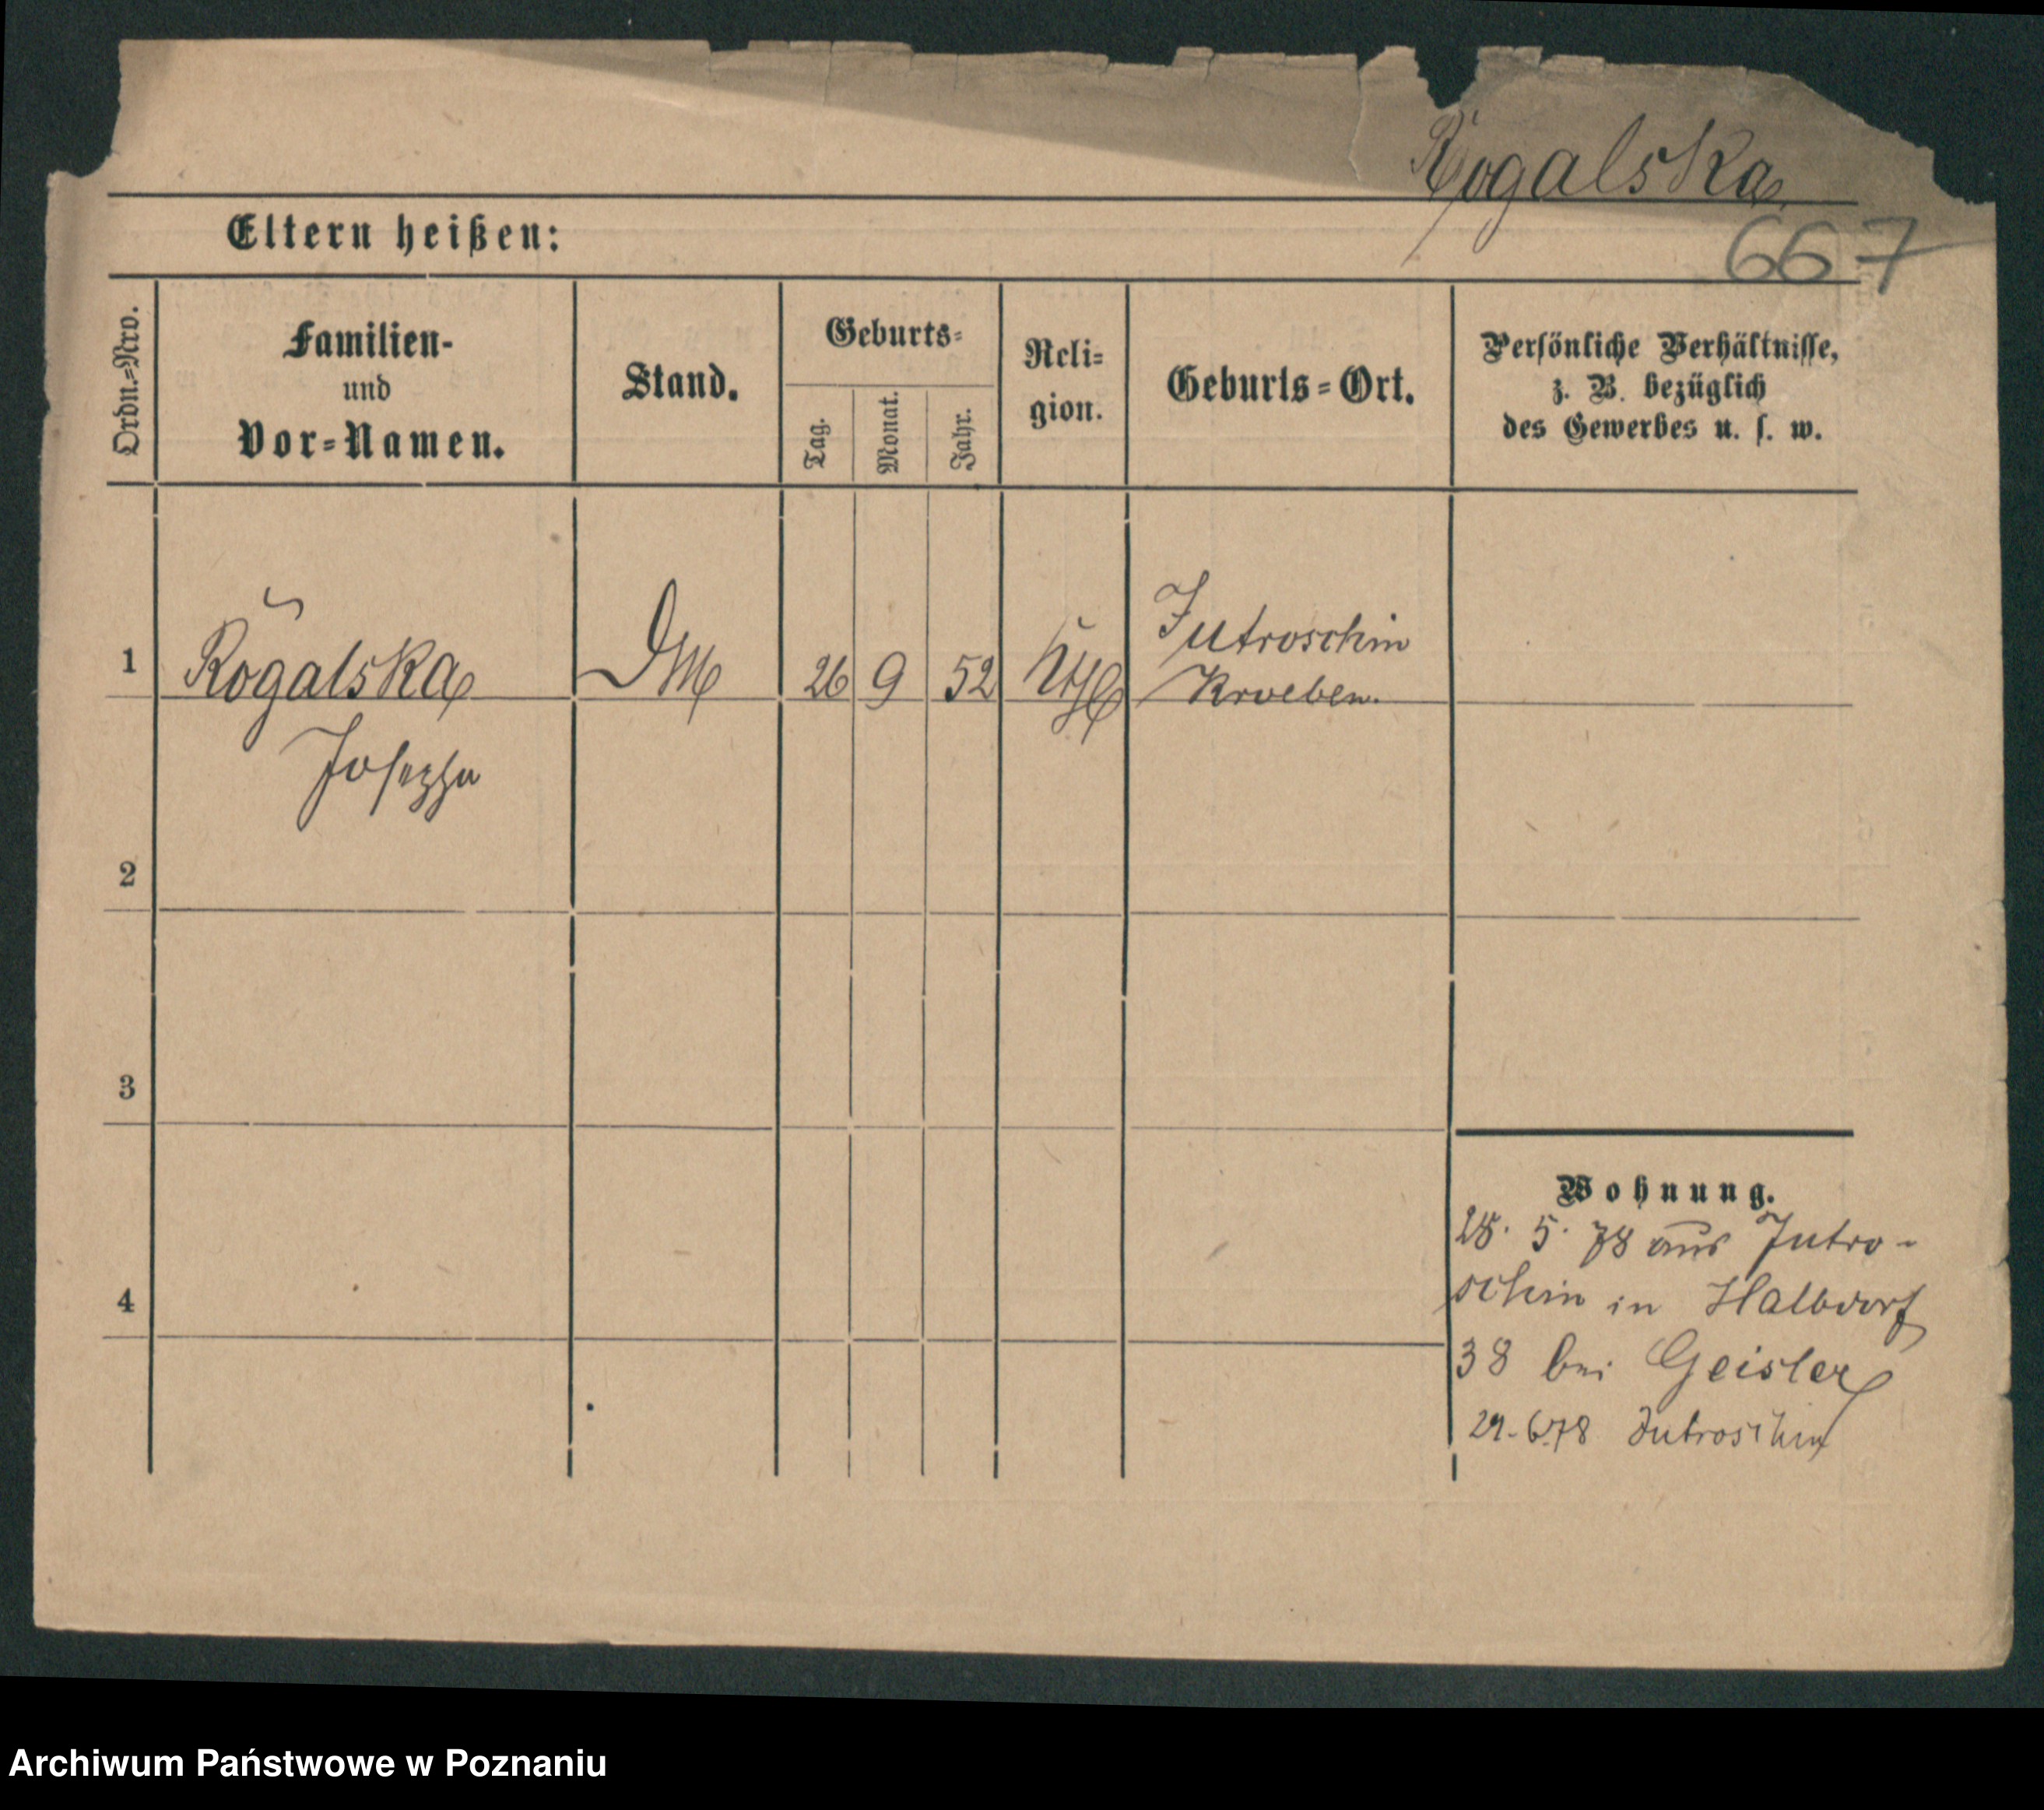 Rogalska
667
Eltern heißen:
Ordn.=Nro.
Familien-
und
Vor=Namen.
Stand.
Geburts=
Tag.
Monat.
Jahr.
Reli=
gion.
Geburts=Ort.
Persönliche Verhältnisse,
z. B. bezüglich
des Gewerbes u. s. w.
1
Rogalska
Josepha
DM
26
9
52
Jutroschin
Kroeben.
2
3
4
Wohnung.
28. 5. 78 aus Jutro-
schin in Halbdorf
38 bei Geisler
29.6.78 Jutroschin
Archiwum Państwowe w Poznaniu